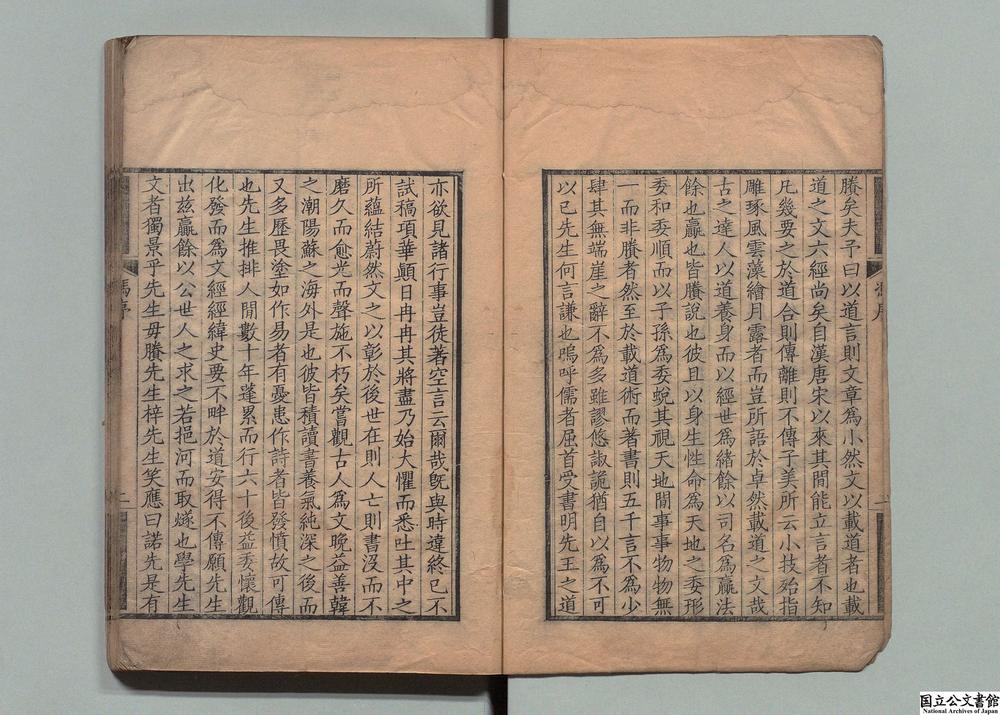 賸矣夫予曰以道言則文章爲小然文以載道者也載
道之文六經尚矣自漢唐宋以來其間能立言者不知
凡幾要之於道合則傳離則不傳子美所云小技殆指
雕琢風雲藻繪月露者而豈所語於卓然載道之文哉
古之達人以道養身而以經世爲緒餘以司名爲贏法
餘也贏也皆賸說也彼且以身生性命爲天地之委形
委和委順而以子孫爲委蛻其視天地間事事物物無
一而非賸者然至於載道術而著書則五千言不爲少
肆其無端崖之辭不爲多雖謬悠諔詭猶自以爲不可
以已先生何言謙也嗚呼儒者屈首受書明先王之道
亦欲見諸行事豈徒著空言云爾哉旣與時違終已不
試稿項華顚日冉冉其將盡乃始大懼而悉吐其中之
所蘊結蔚然文之以彰於後世在則人亡則書沒而不
磨久而愈光而聲施不朽矣嘗觀古人爲文晚益善韓
之潮陽蘇之海外是也彼皆積讀書養氣純深之後而
又多歷畏塗如作易者有憂患作詩者皆發憤故可傳
也先生推排人間數十年蓬累而行六十後益委懷觀
化發而爲文經經緯史要不畔於道安得不傳願先生
出兹贏餘以公世人之求之若挹河而取燧也學先生
文者獨景乎先生毋賸先生梓先生笑應曰諾先是有
馮序
二
国立公文書館
National Archives of Japan